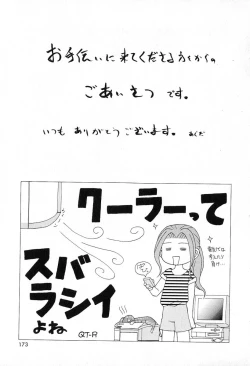 お手伝いに来てくださる方々からの
ごあいさつ です。
いつも ありがとうございます。
クーラーって
スバ
ラシイ
よね
173